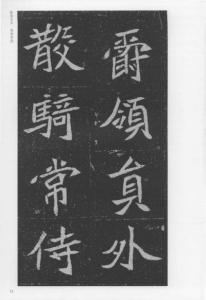 爵領員外
散騎常侍